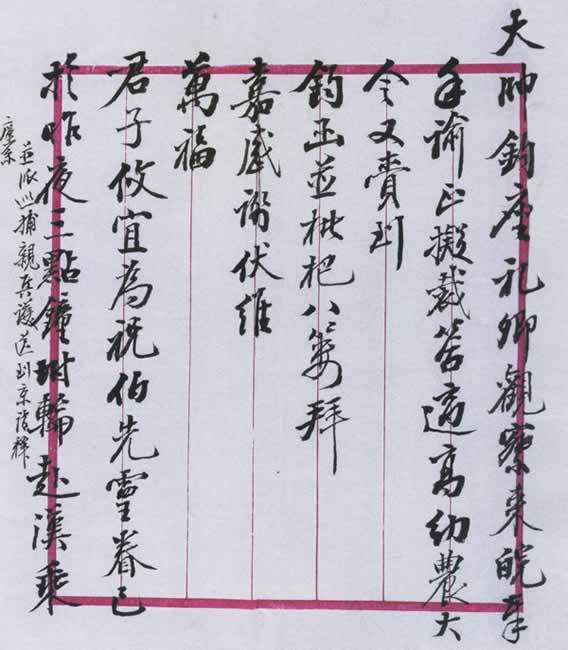 大帥鈞座礼卿觀察来皖奉
手諭正擬裁答適高幼農大
令又賫到
鈞函並枇杷八簍拜
嘉感謝伏維
萬福
君子攸宜為祝伯先靈眷已
於昨夜三點鐘附輪赴漢乘
並派巡捕親兵護送到京請釋
廑系